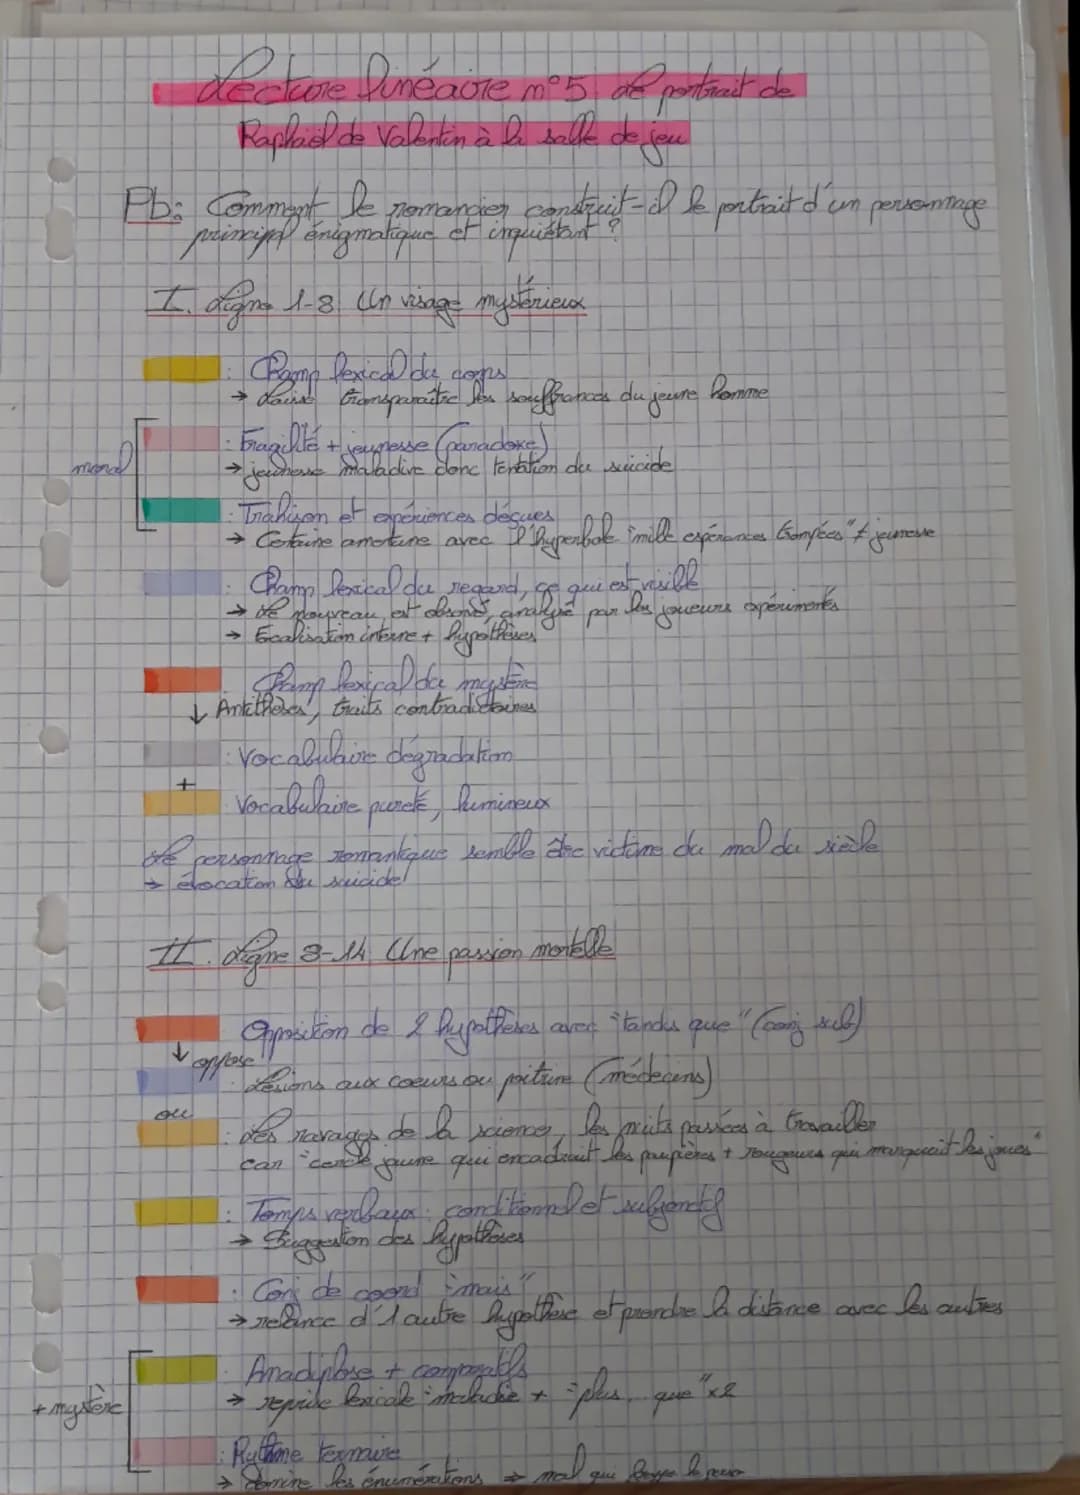 Lecture linéaire n°5 Le portrait de
Raphaël de Valentin à la salle de jeu
Pb: Comment le romancier construit-il le portrait d'un personnage
principal énigmatique et inquiétant ?
I. Ligne 1-8 Un visage mystérieux
: Champ lexical du corps
→ Laisse transparaître les souffrances du jeune homme
moral
: Fragilité + jeunesse (paradoxe)
→ jeunesse maladive donc tentation du suicide
: Trahison et expériences déçues
→ Certaine amertume avec l'hyperbole "mille espérances trompées" ≠ jeunesse
: Champ lexical du regard, ce qui est visible
→ Le nouveau est observé, analysé par les joueurs expérimentés
→ Focalisation interne + hypothèses
Champ lexical du mystère
↓ Antithèses, traits contradictoires
: Vocabulaire dégradation
+
Vocabulaire pureté, lumineux
Le personnage romantique semble être victime du mal du siècle
→ évocation du suicide
II. Ligne 8-14 Une passion mortelle
Opposition de 2 hypothèses avec "tandis que" (conj sub)
↓ oppose
: Lésions aux coeurs ou poitrine (médecins)
ou
: Les ravages de la science, les nuits passées à travailler
car "cercle jaune qui encadrait les paupières + rougeurs qui marquait les joues"
: Temps verbaux : conditionnel et subjonctif
→ Suggestion des hypothèses
: Conj de coord "mais"
→ relance d'1 autre hypothèse et prendre la distance avec les autres
+ mystère
: Anadiplose + comparatifs
→ reprise lexicale "maladie + "plus.. que" x2
: Rythme ternaire
→ les énumérations → mal qui